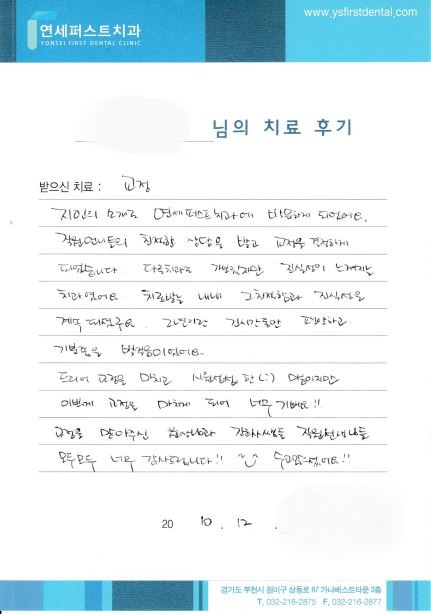 연세퍼스트치과
YONSEI FIRST DENTAL CLINIC
www.ysfirstdental.com
님의 치료 후기
받으신 치료 : 교정
지인의 소개로 연세퍼스트치과에 방문하게 되었어요.
직원언니들의 친절한 상담을 받고 교정을 결정하게
되었습니다 다른치과도 가보았지만 진실성이 느껴지는
치과였어요. 치료받는 내내 그친절함과 진실성은
계속 되었구요. 2년이란 긴시간동안 편안하고
기분좋은 발걸음이었어요~
드디어 교정을 마치고 시원섭섭 한 (:) 마음이지만
이쁘게 교정을 마치게 되어 너무 기뻐요!!
교정을 맡아주신 원장님과 간호사쌤들 직원선생님들
모두모두 너무 감사드립니다!! ~ 수고많으셨어요!!
20 10 . 12 .
경기도 부천시 원미구 상동로 87 가나베스트타운 3층
T. 032-216-2875 F. 032-216-2877